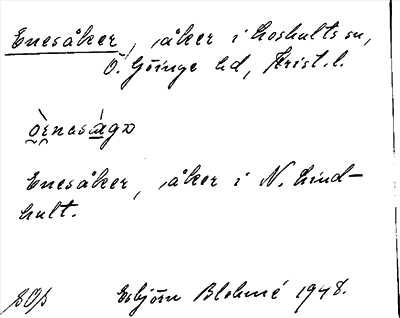 Enesåker, åker i Loshults sn,
Ö. Göinge hd, Krist. l.
Enesåker, åker i N. Lind-
hult.
Esbjörn Blohmé 1948.